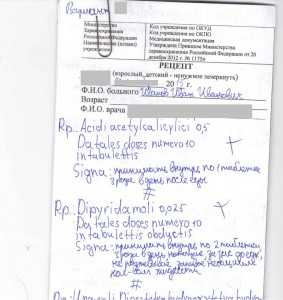 Министерство
Здравоохранения
Российской Федерации
Наименование (штамп)
учреждения
Код учреждения по ОКУД
Код учреждения по ОКПО
Медицинская документация
Утверждена Приказом Министерства
здравоохранения Российской Федерации от 20
декабря 2012 г. № 1175н
РЕЦЕПТ
(взрослый, детский - ненужное зачеркнуть)
Ф.И.О. больного Иванов Иван Иванович
Возраст
Ф.И.О. врача
Rp. Acidi acetylsalicylici 0,5
Da tales doses numero 10
in tabulettis
Signa: принимать внутрь по 1 таблетке
3 раза в день после еды
#
Rp.: Dipyridamoli 0,025
Da tales doses numero 10
in tabulettis obductis
Signa: принимать внутрь по 2 таблетки
3 раза в день
#